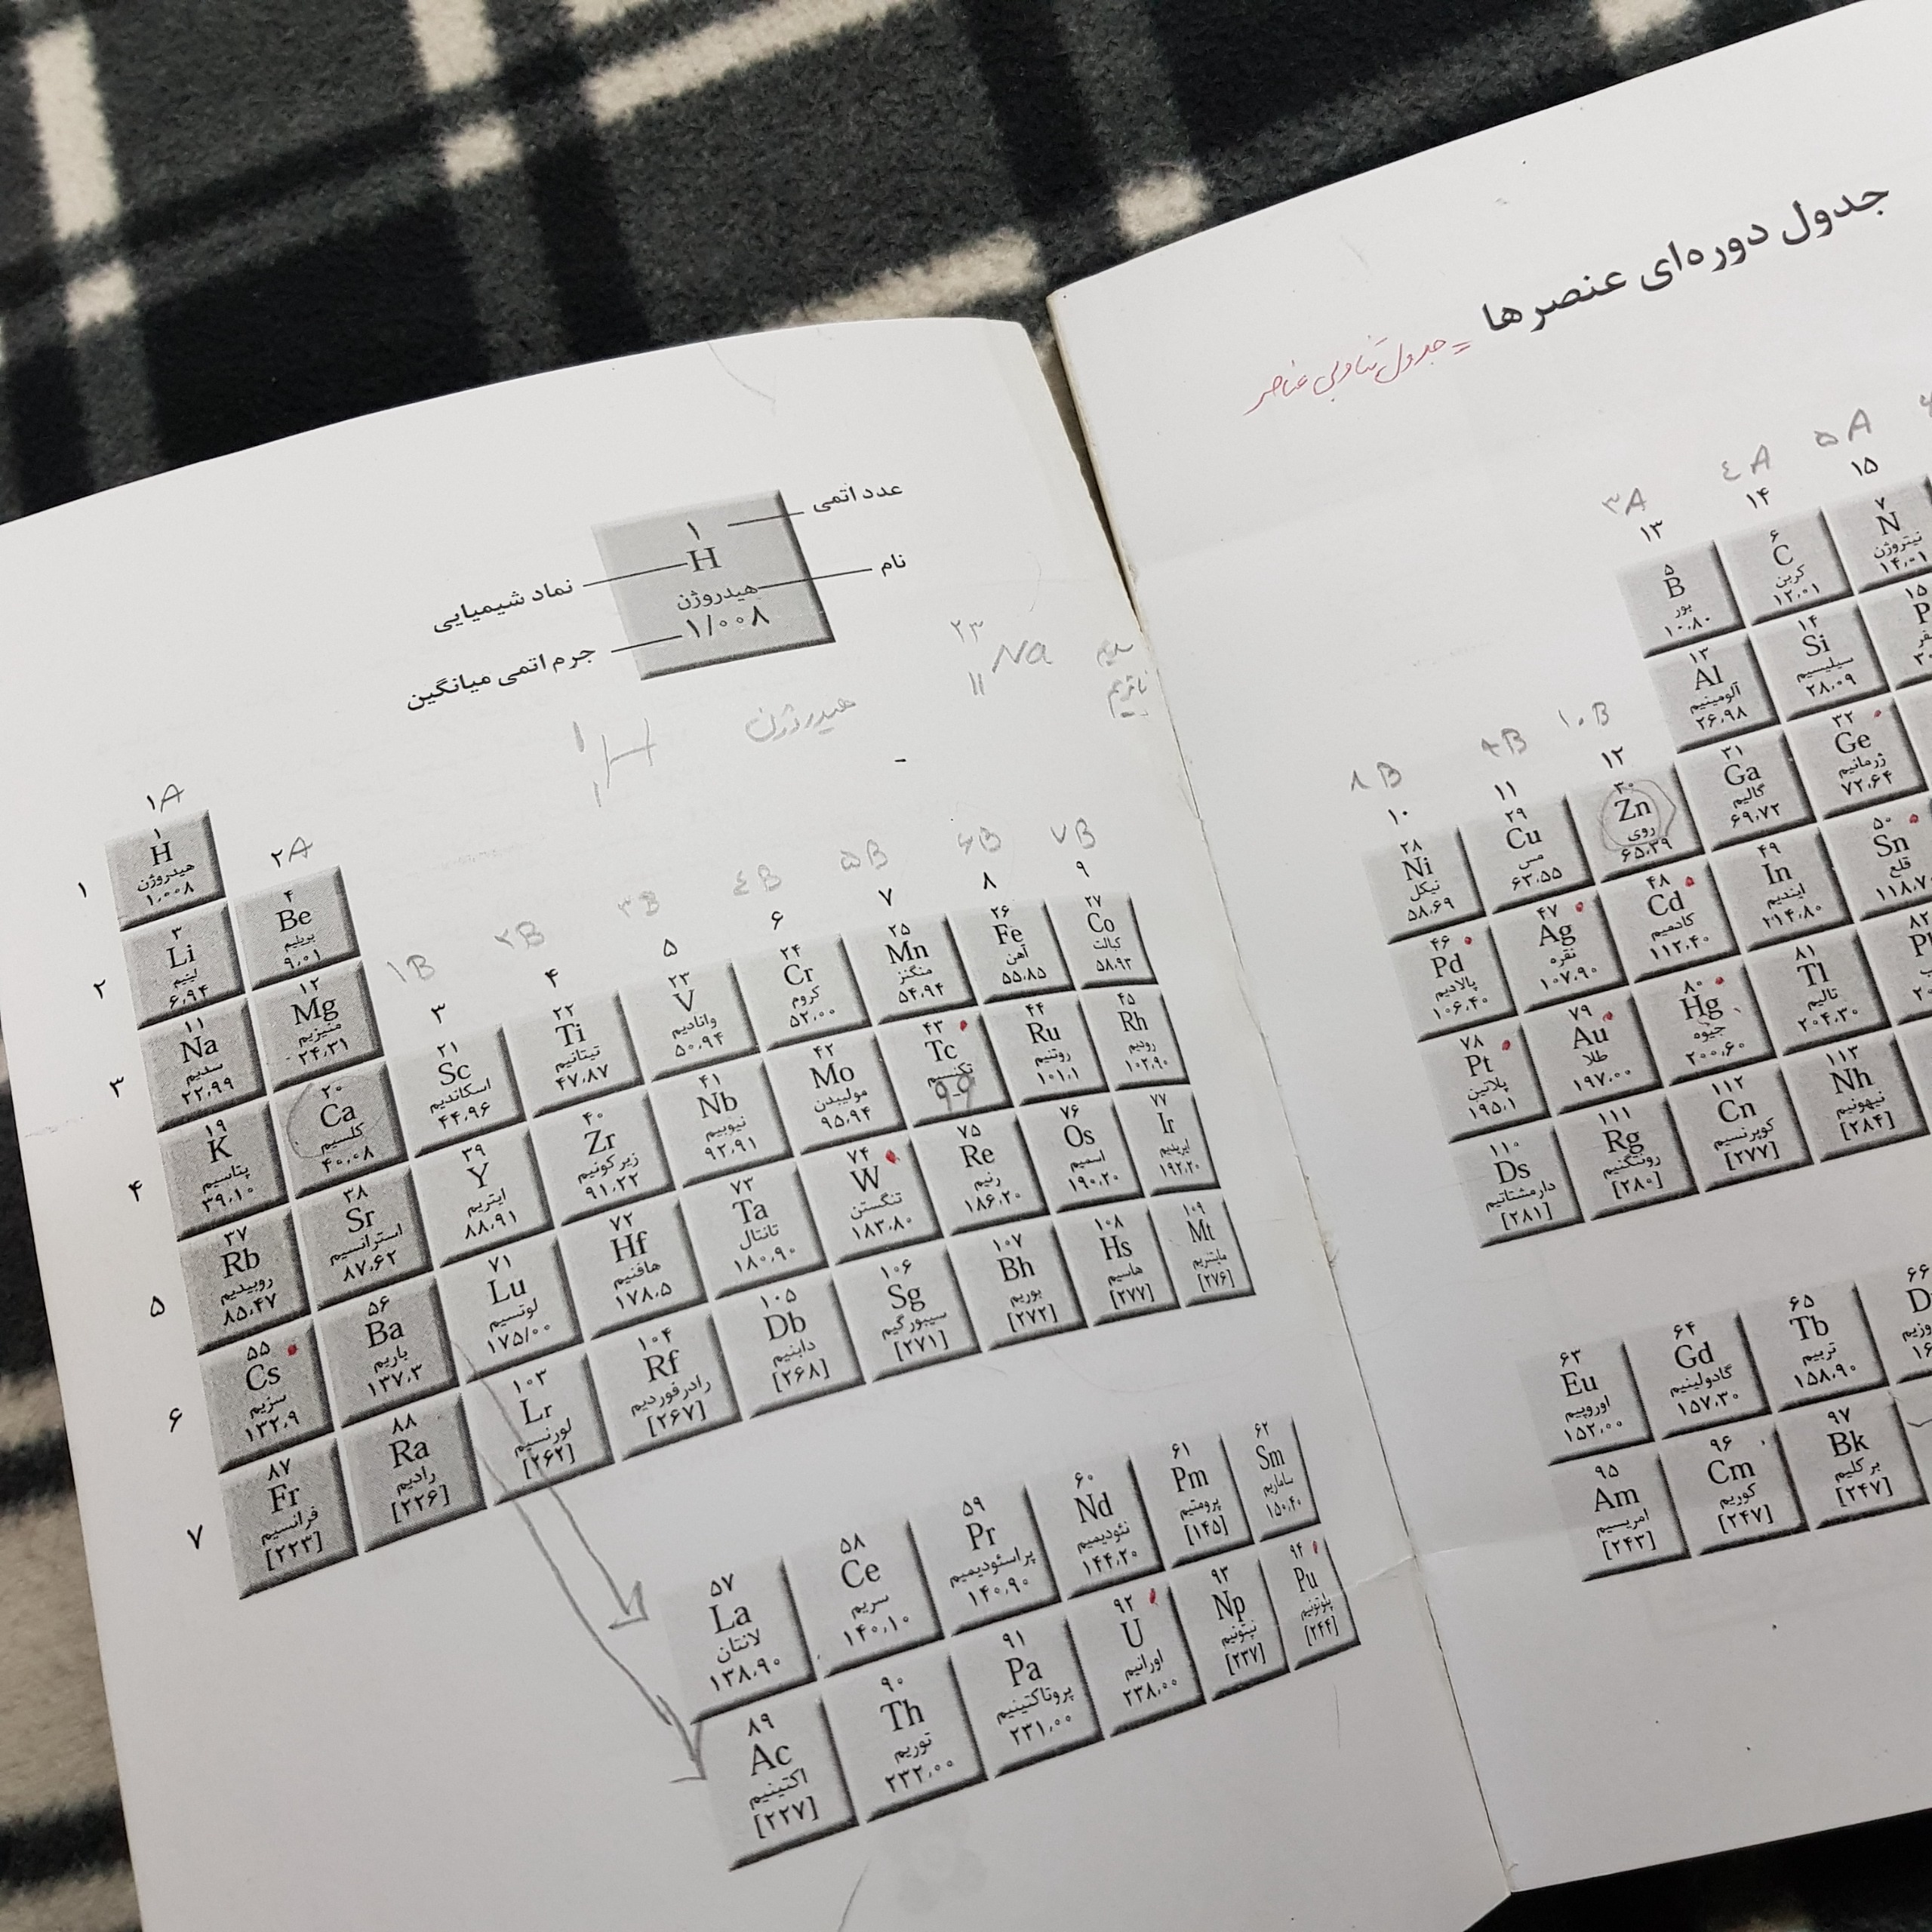 جدول دوره‌ای عنصرها
= جدول تناوبی عناصر
عدد اتمی
نام
نماد شیمیایی
جرم اتمی میانگین
۱
H
هیدروژن
۱/۰۰۸
۲۳
۱۱ Na
سدیم
ناتریم
هیدروژن
۱
۱ H
۱A
۲A
۱B
۲B
۳B
٤B
۵B
۶B
۷B
۸B
۹B
۱۰B
۳A
٤A
۵A
۳ ۴ ۵ ۶ ۷ ۸ ۹ ۱۰ ۱۱ ۱۲ ۱۳ ۱۴ ۱۵
۱
۱ H هیدروژن ۱.۰۰۸
۲
۳ Li لیتیم ۶.۹۴
۴ Be بریلیم ۹.۰۱
۵ B بور ۱۰.۸۰
۶ C کربن ۱۲.۰۱
۷ N نیتروژن ۱۴.۰۱
۳
۱۱ Na سدیم ۲۲.۹۹
۱۲ Mg منیزیم ۲۴.۳۱
۱۳ Al آلومینیم ۲۶.۹۸
۱۴ Si سیلیسیم ۲۸.۰۹
۱۵
۴
۱۹ K پتاسیم ۳۹.۱۰
۲۰ Ca کلسیم ۴۰.۰۸
۲۱ Sc اسکاندیم ۴۴.۹۶
۲۲ Ti تیتانیم ۴۷.۸۷
۲۳ V وانادیم ۵۰.۹۴
۲۴ Cr کروم ۵۲.۰۰
۲۵ Mn منگنز ۵۴.۹۴
۲۶ Fe آهن ۵۵.۸۵
۲۷ Co کبالت ۵۸.۹۳
۲۸ Ni نیکل ۵۸.۶۹
۲۹ Cu مس ۶۳.۵۵
۳۰ Zn روی ۶۵.۳۹
۳۱ Ga گالیم ۶۹.۷۲
۳۲ Ge ژرمانیم ۷۲.۶۴
۵
۳۷ Rb روبیدیم ۸۵.۴۷
۳۸ Sr استرانسیم ۸۷.۶۲
۳۹ Y ایتریم ۸۸.۹۱
۴۰ Zr زیرکونیم ۹۱.۲۲
۴۱ Nb نیوبیم ۹۲.۹۱
۴۲ Mo مولیبدن ۹۵.۹۴
۴۳ Tc تکنسیم
۴۴ Ru روتنیم ۱۰۱.۱
۴۵ Rh رودیم ۱۰۲.۹۰
۴۶ Pd پالادیم ۱۰۶.۴۰
۴۷ Ag نقره ۱۰۷.۹۰
۴۸ Cd کادمیم ۱۱۲.۴۰
۴۹ In ایندیم ۲۱۴.۸۰
۵۰ Sn قلع ۱۱۸.۷۰
۶
۵۵ Cs سزیم ۱۳۲.۹
۵۶ Ba باریم ۱۳۷.۳
۷۱ Lu لوتسیم ۱۷۵/۰۰
۷۲ Hf هافنیم ۱۷۸.۵
۷۳ Ta تانتال ۱۸۰.۹۰
۷۴ W تنگستن ۱۸۳.۸۰
۷۵ Re رنیم ۱۸۶.۲۰
۷۶ Os اسمیم ۱۹۰.۲۰
۷۷ Ir ایریدیم ۱۹۲.۲۰
۷۸ Pt پلاتین ۱۹۵.۱
۷۹ Au طلا ۱۹۷.۰۰
۸۰ Hg جیوه ۲۰۰.۶۰
۸۱ Tl تالیم ۲۰۴.۳۰
۸۲
۷
۸۷ Fr فرانسیم [۲۲۳]
۸۸ Ra رادیم [۲۲۶]
۱۰۳ Lr لورنسیم [۲۶۲]
۱۰۴ Rf رادرفوردیم [۲۶۷]
۱۰۵ Db دابنیم [۲۶۸]
۱۰۶ Sg سیبورگیم [۲۷۱]
۱۰۷ Bh بوریم [۲۷۲]
۱۰۸ Hs هاسیم [۲۷۷]
۱۰۹ Mt مایتنریم [۲۷۶]
۱۱۰ Ds دارمشتاتیم [۲۸۱]
۱۱۱ Rg رونتگنیم [۲۸۰]
۱۱۲ Cn کوپرنسیم [۲۷۷]
۱۱۳ Nh نیهونیم [۲۸۴]
۵۷ La لانتان ۱۳۸.۹۰
۵۸ Ce سریم ۱۴۰.۱۰
۵۹ Pr پراسئودیمیم ۱۴۰.۹۰
۶۰ Nd نئودیمیم ۱۴۴.۲۰
۶۱ Pm پرومتیم [۱۴۵]
۶۲ Sm ساماریم ۱۵۰.۴۰
۶۳ Eu اوروپیم ۱۵۲.۰۰
۶۴ Gd گادولینیم ۱۵۷.۳۰
۶۵ Tb تربیم ۱۵۸.۹۰
۶۶
۸۹ Ac اکتینیم [۲۲۷]
۹۰ Th توریم ۲۳۲.۰۰
۹۱ Pa پروتاکتینیم ۲۳۱.۰۰
۹۲ U اورانیم ۲۳۸.۰۰
۹۳ Np نپتونیم [۲۳۷]
۹۴ Pu پلوتونیم [۲۴۴]
۹۵ Am امریسیم [۲۴۳]
۹۶ Cm کوریم [۲۴۷]
۹۷ Bk برکلیم [۲۴۷]